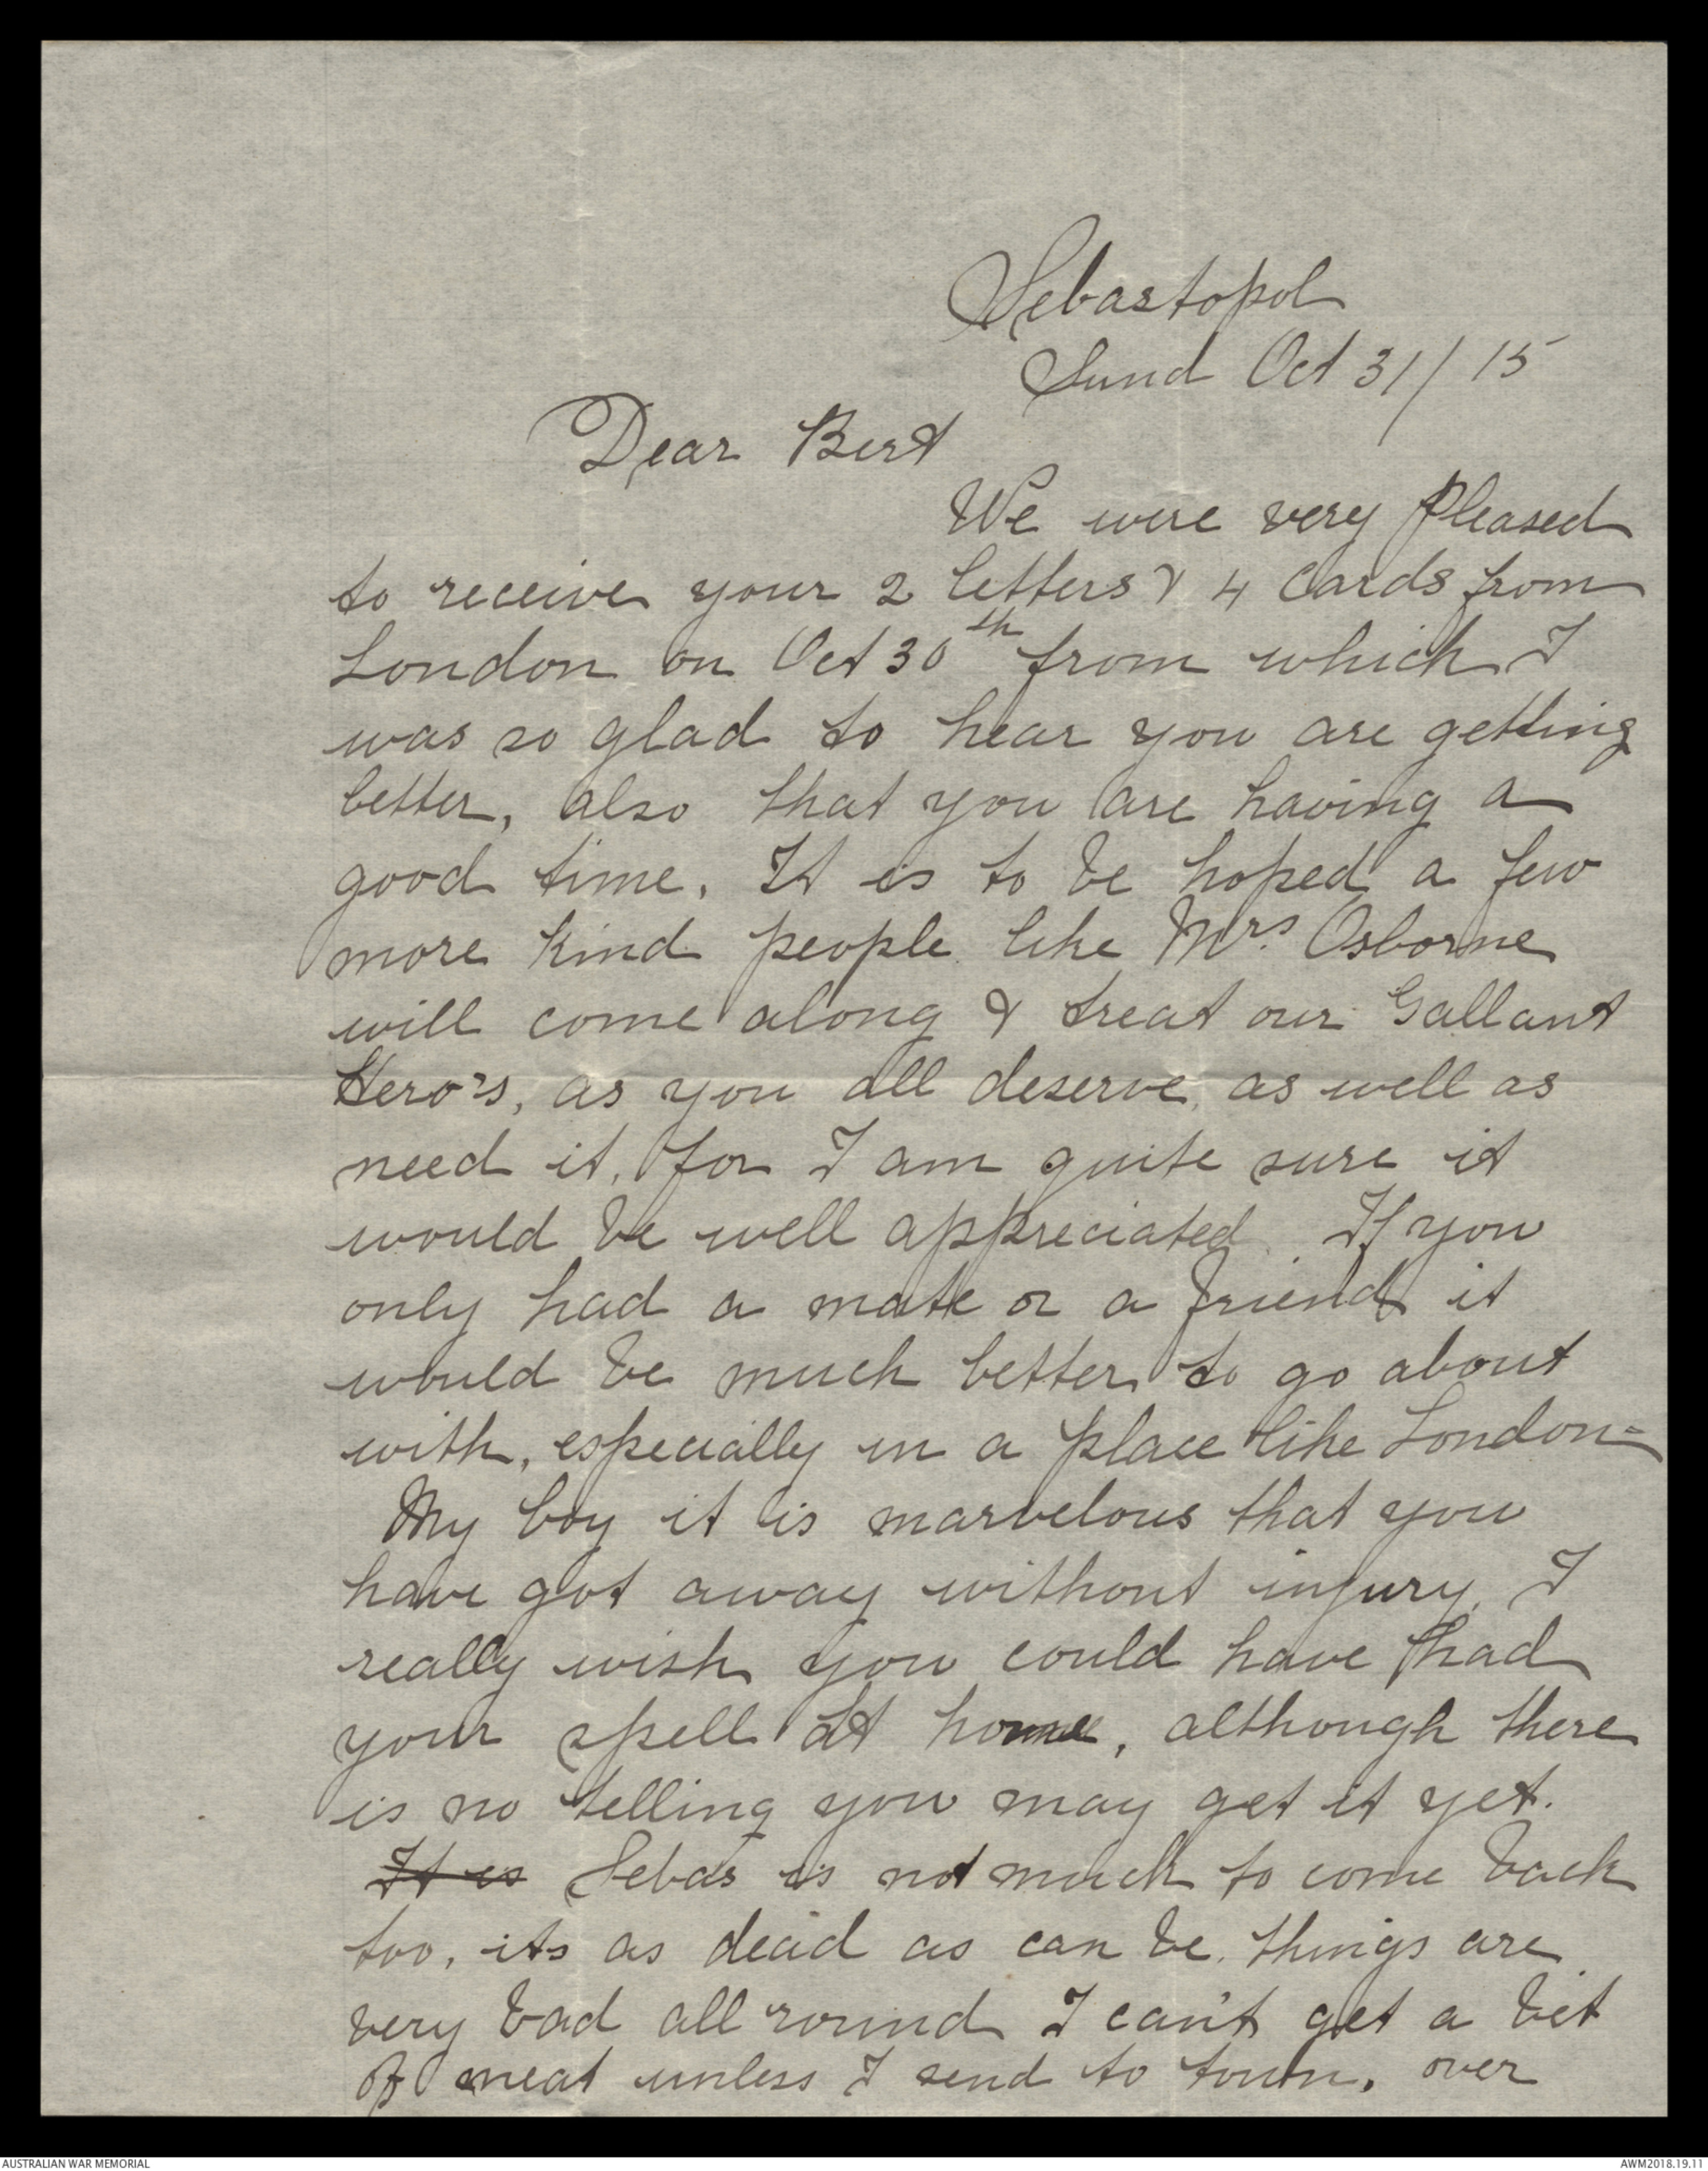 Sebastopol
Sund Oct 31/15
Dear Bert
We were very pleased
to receive your 2 letters & 4 cards from
London on Oct 30th from which I
was so glad to hear you are getting
better, also that you are having a
good time. It is to be hoped a few
more kind people like Mrs. Osborne
will come along & treat our Gallant
Hero's, as you all deserve, as well as
need it, for I am quite sure it
would be well appreciated. If you
only had a mate or a friend it
would be much better to go about
with, especially in a place like London-
My boy it is marvelous that you
have got away without injury, I
really wish you could have had
your spell at home, although there
is no telling you may get it yet.
It is Sebas is not much to come back
too, its as dead as can be. things are
very bad all round I can't get a bit
of meat unless I send to town. over
AUSTRALIAN WAR MEMORIAL
AWM2018.19.11